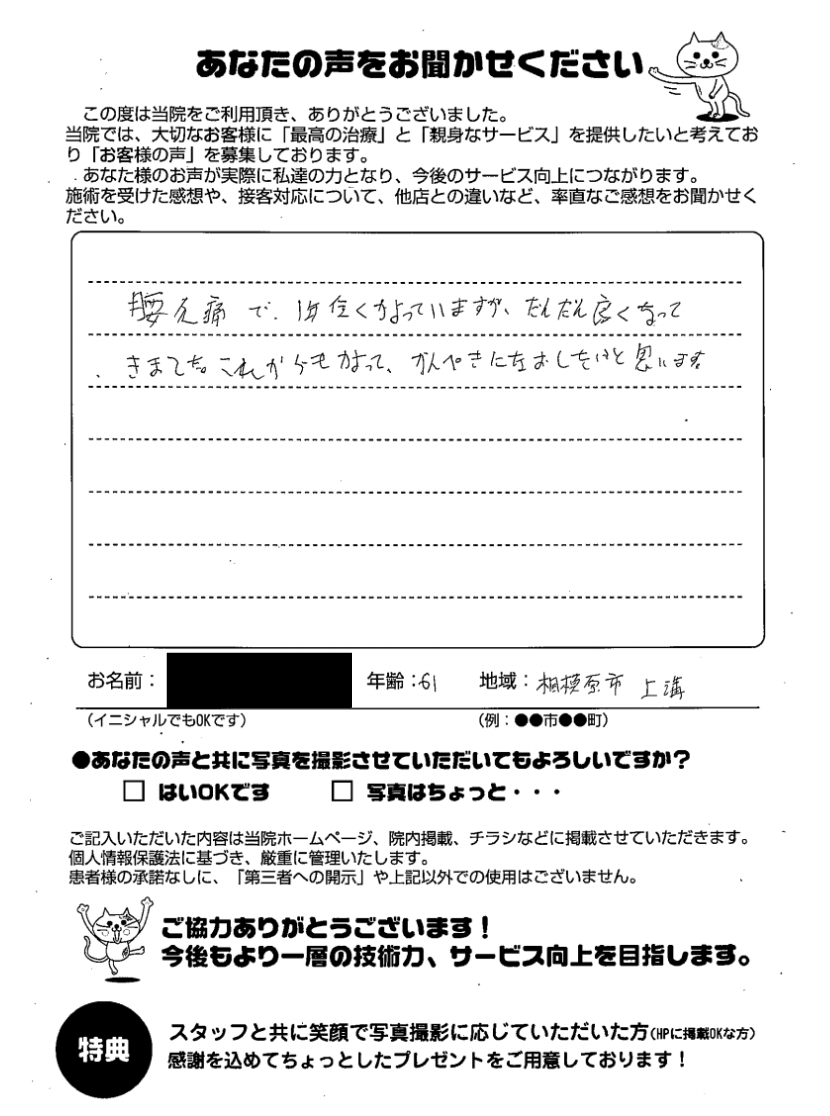 あなたの声をお聞かせください
この度は当院をご利用頂き、ありがとうございました。
当院では、大切なお客様に「最高の治療」と「親身なサービス」を提供したいと考えてお
り「お客様の声」を募集しております。
あなた様のお声が実際に私達の力となり、今後のサービス向上につながります。
施術を受けた感想や、接客対応について、他店との違いなど、率直なご感想をお聞かせく
ださい。
腰痛で、位くかよっていますが、だんだん良くなって
きました。これからもかよって、かんぺきになおしたいと思います
お名前：
年齢：61
地域：相模原市 上溝
(イニシャルでもOKです)
(例：●●市●●町)
●あなたの声と共に写真を撮影させていただいてもよろしいですか？
□ はいOKです □ 写真はちょっと・・・
ご記入いただいた内容は当院ホームページ、院内掲載、チラシなどに掲載させていただきます。
個人情報保護法に基づき、厳重に管理いたします。
患者様の承諾なしに、「第三者への開示」や上記以外での使用はございません。
ご協力ありがとうございます！
今後もより一層の技術力、サービス向上を目指します。
特典
スタッフと共に笑顔で写真撮影に応じていただいた方(HPに掲載OKな方)
感謝を込めてちょっとしたプレゼントをご用意しております！